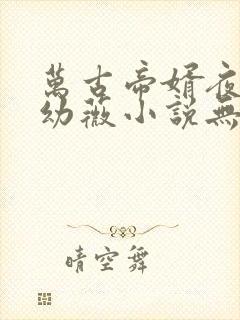 萬古帝婿夜
幼薇小説無
晴空舞